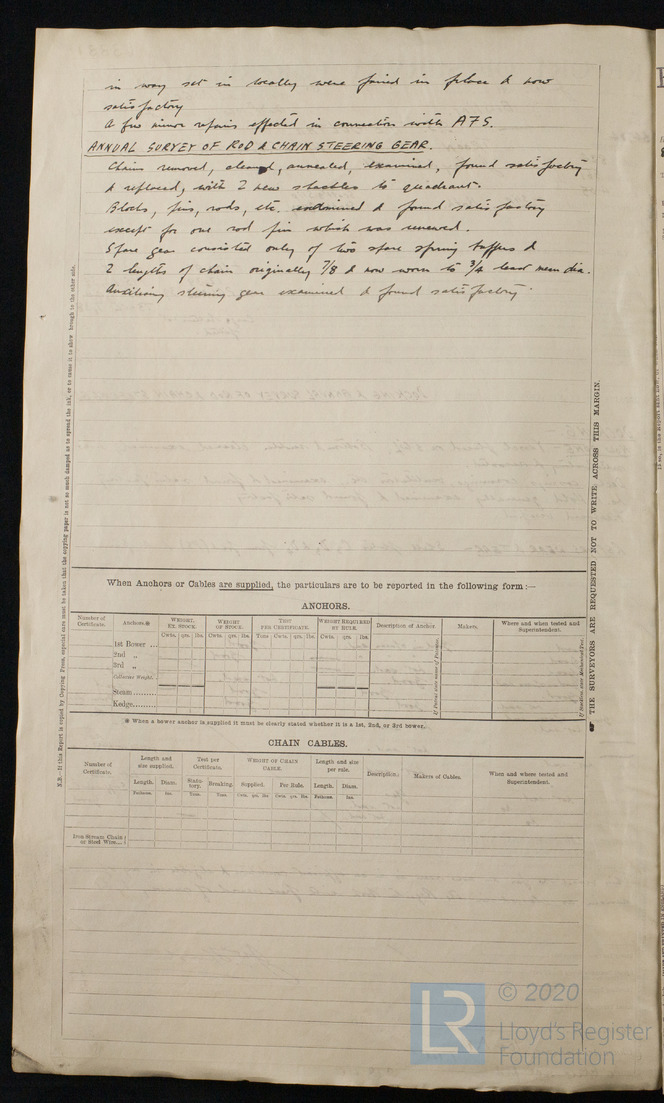 in way set in locally were faired in place & now
satisfactory
A few minor repairs effected in connection with A7S.
ANNUAL SURVEY OF ROD & CHAIN STEERING GEAR.
Chains removed, cleaned, annealed, examined, found satisfactory
& replaced, with 2 new shackles to quadrant.
Blocks, pins, rods, etc. examined & found satisfactory
except for one rod pin which was renewed.
Spare gear consisted only of two spare spring buffers &
2 lengths of chain originally 7/8 & now worn to 3/4 least mean dia.
Auxiliary steering gear examined & found satisfactory.
N.B.—If this Report is copied by Copying Press, especial care must be taken that the copying paper is not so much damped as to spread the ink, or to cause it to show through to the other side.
THE SURVEYORS ARE REQUESTED NOT TO WRITE ACROSS THIS MARGIN.
When Anchors or Cables are supplied, the particulars are to be reported in the following form:—
ANCHORS.
Number of Certificate. Anchors.* WEIGHT, EX. STOCK. WEIGHT OF STOCK. TEST PER CERTIFICATE. WEIGHT REQUIRED BY RULE. Description of Anchor. Makers. Where and when tested and Superintendent.
Cwts. qrs. lbs. Cwts. qrs. lbs. Tons Cwts. qrs. lbs. Cwts. qrs. lbs.
1st Bower ...
2nd „
3rd „
Collective Weight.
Stream
Kedge
* When a bower anchor is supplied it must be clearly stated whether it is a 1st, 2nd, or 3rd bower.
CHAIN CABLES.
Number of Certificate. Length and size supplied. Test per Certificate. WEIGHT OF CHAIN CABLE. Length and size per rule. Description. Makers of Cables. When and where tested and Superintendent.
Length. Diam. Statutory. Breaking. Supplied. Per Rule. Length. Diam.
Fathoms. Ins. Tons. Tons. Cwts. qrs. lbs Cwts. qrs. lbs Fathoms. Ins.
Iron Stream Chain
or Steel Wire...
LR © 2020
Lloyd's Register
Foundation